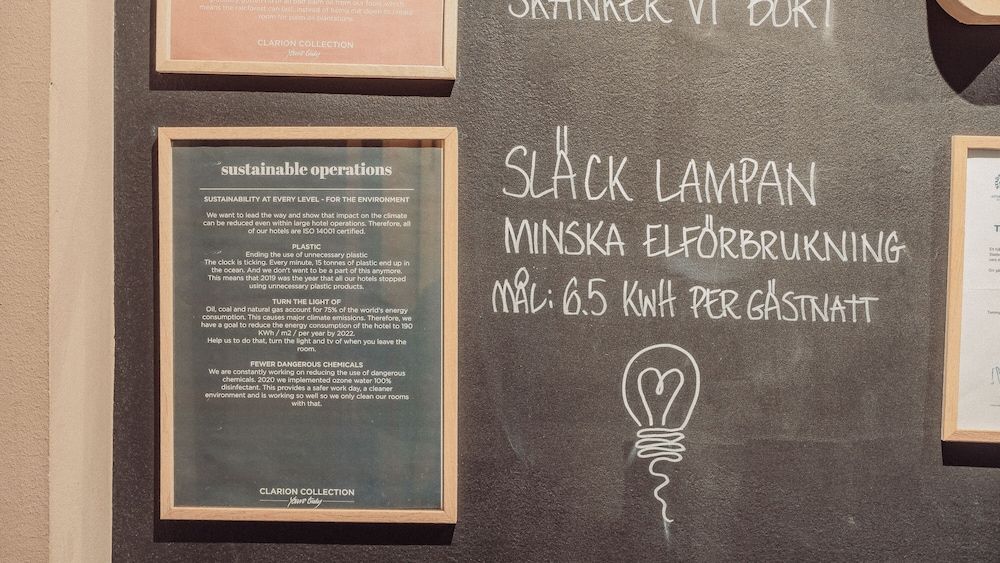 means the rainforest can last, instead of being cut down to create
room for palm oil plantations.
CLARION COLLECTION
SKÄNKER VI BORT
sustainable operations
SUSTAINABILITY AT EVERY LEVEL - FOR THE ENVIRONMENT
We want to lead the way and show that impact on the climate
can be reduced even within large hotel operations. Therefore, all
of our hotels are ISO 14001 certified.
PLASTIC
Ending the use of unnecessary plastic
The clock is ticking. Every minute, 15 tonnes of plastic end up in
the ocean. And we don't want to be a part of this anymore.
This means that 2019 was the year that all our hotels stopped
using unnecessary plastic products.
TURN THE LIGHT OF
Oil, coal and natural gas account for 75% of the world's energy
consumption. This causes major climate emissions. Therefore, we
have a goal to reduce the energy consumption of the hotel to 190
KWh / m2 / per year by 2022.
Help us to do that, turn the light and tv of when you leave the
room.
FEWER DANGEROUS CHEMICALS
We are constantly working on reducing the use of dangerous
chemicals. 2020 we implemented ozone water 100%
disinfectant. This provides a safer work day, a cleaner
environment and is working so well so we only clean our rooms
with that.
CLARION COLLECTION
SLÄCK LAMPAN
MINSKA ELFÖRBRUKNING
MÅL: 6.5 KWH PER GÄSTNATT